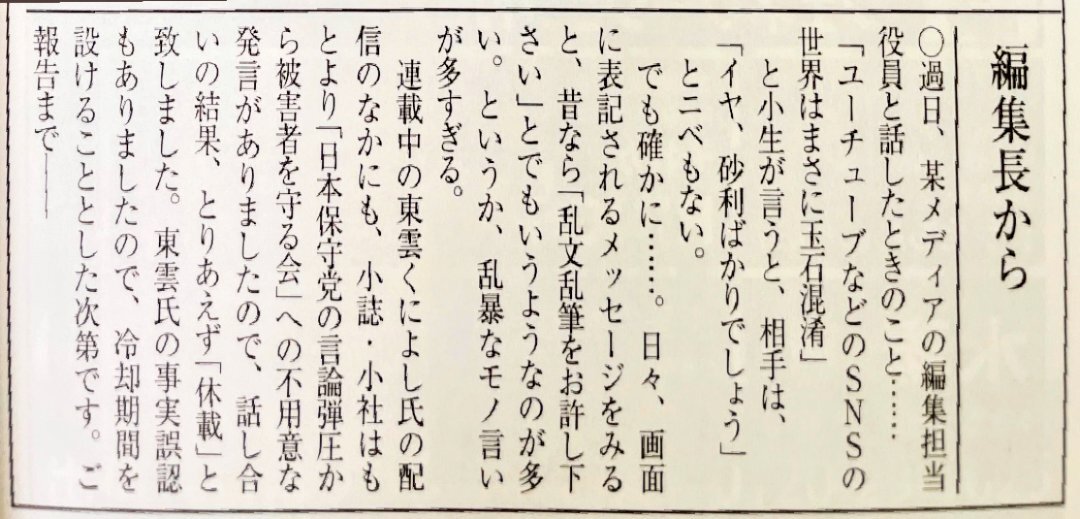 編集長から
○過日、某メディアの編集担当
役員と話したときのこと……
「ユーチューブなどのSNSの
世界はまさに玉石混淆」
と小生が言うと、相手は、
「イヤ、砂利ばかりでしょう」
とニベもない。
でも確かに……。日々、画面
に表記されるメッセージをみる
と、昔なら「乱文乱筆をお許し下
さい」とでもいうようなのが多
い。というか、乱暴なモノ言い
が多すぎる。
連載中の東雲くによし氏の配
信のなかにも、小誌・小社はも
とより「日本保守党の言論弾圧か
ら被害者を守る会」への不用意な
発言がありましたので、話し合
いの結果、とりあえず「休載」と
致しました。東雲氏の事実誤認
もありましたので、冷却期間を
設けることとした次第です。ご
報告まで――